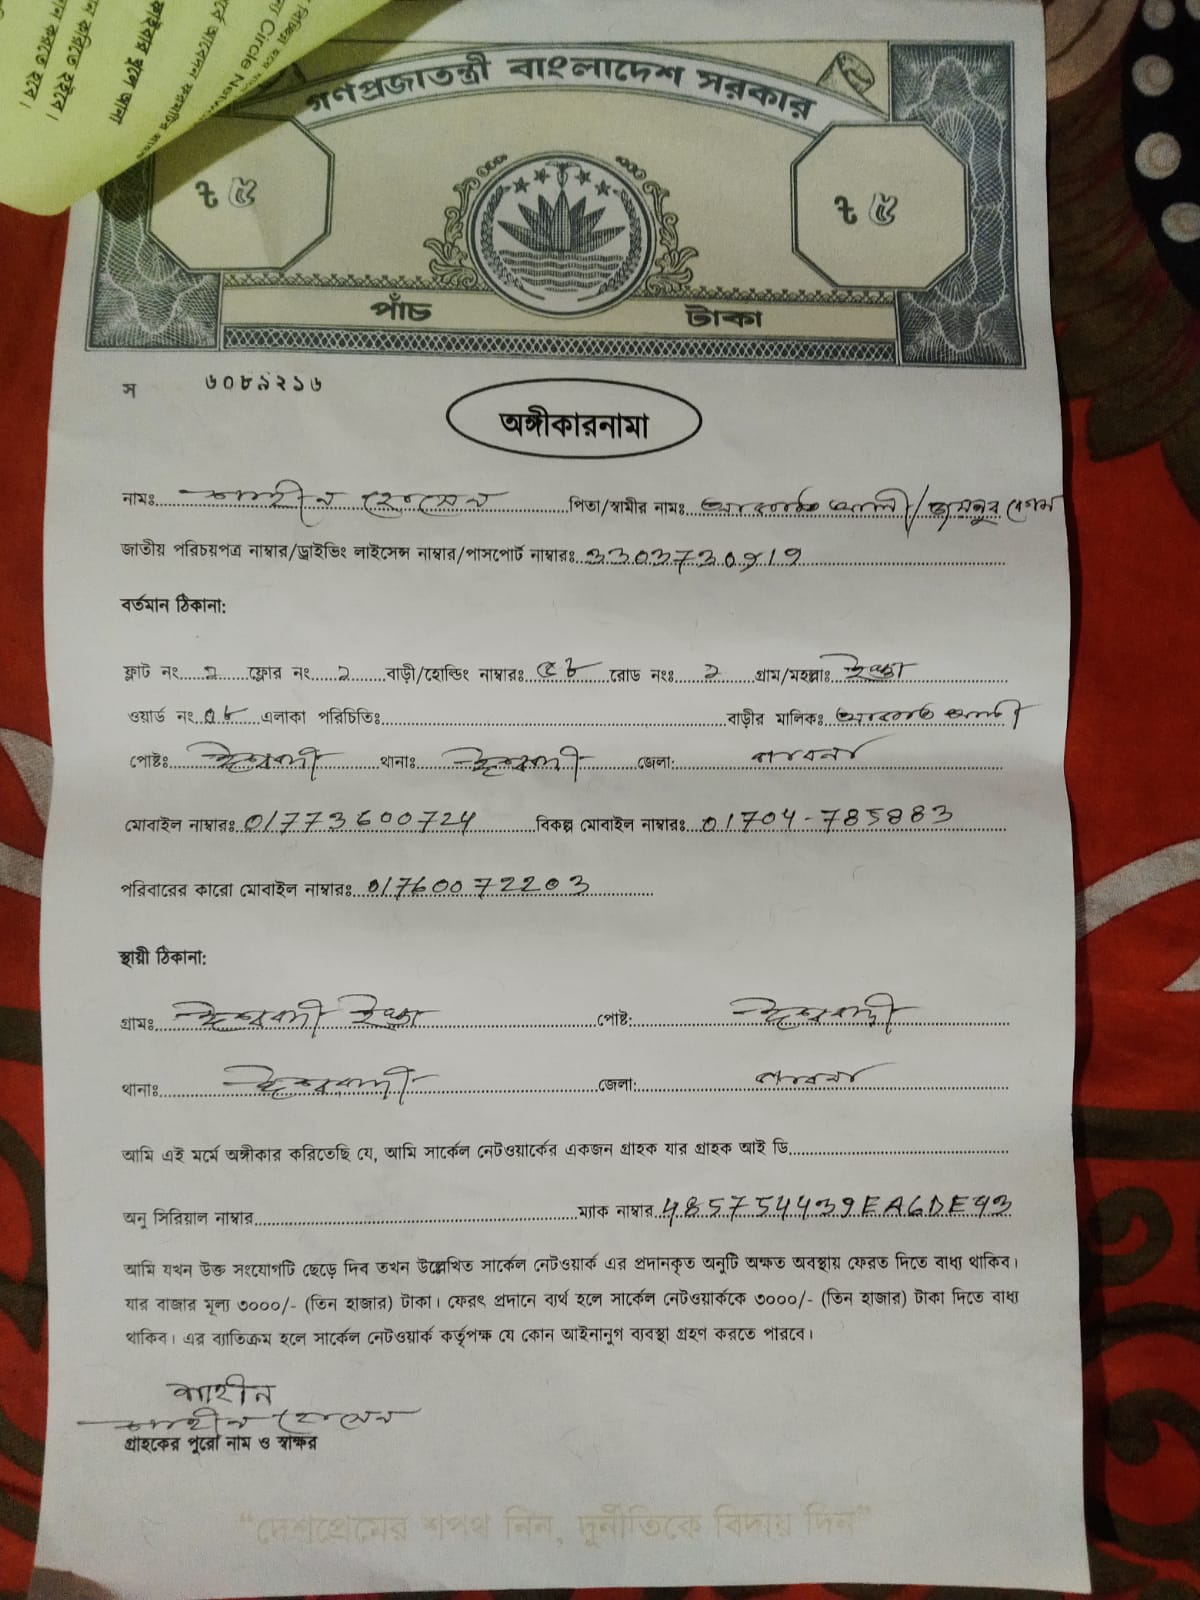 গণপ্রজাতন্ত্রী বাংলাদেশ সরকার
৳ ৫ ৳ ৫
পাঁচ টাকা
স ৬০৮৯২১৬
অঙ্গীকারনামা
নামঃ শাহীন হোসেন পিতা/স্বামীর নামঃ আলী/ বেগম
জাতীয় পরিচয়পত্র নাম্বার/ড্রাইভিং লাইসেন্স নাম্বার/পাসপোর্ট নাম্বারঃ 3303730919
বর্তমান ঠিকানা:
ফ্লাট নং ২ ফ্লোর নং ২ বাড়ী/হোল্ডিং নাম্বারঃ ৫৮ রোড নংঃ ২ গ্রাম/মহল্লাঃ
ওয়ার্ড নং ০৮ এলাকা পরিচিতিঃ বাড়ীর মালিকঃ আলী
পোষ্টঃ ঈশ্বরদী থানাঃ ঈশ্বরদী জেলা: পাবনা
মোবাইল নাম্বারঃ 01773600724 বিকল্প মোবাইল নাম্বারঃ 01704-785883
পরিবারের কারো মোবাইল নাম্বারঃ 01760072203
স্থায়ী ঠিকানা:
গ্রামঃ ঈশ্বরদী পোষ্ট: ঈশ্বরদী
থানাঃ ঈশ্বরদী জেলা: পাবনা
আমি এই মর্মে অঙ্গীকার করিতেছি যে, আমি সার্কেল নেটওয়ার্কের একজন গ্রাহক যার গ্রাহক আই ডি
অনু সিরিয়াল নাম্বার ম্যাক নাম্বার 485754439EA6DE43
আমি যখন উক্ত সংযোগটি ছেড়ে দিব তখন উল্লেখিত সার্কেল নেটওয়ার্ক এর প্রদানকৃত অনুটি অক্ষত অবস্থায় ফেরত দিতে বাধ্য থাকিব।
যার বাজার মূল্য ৩০০০/- (তিন হাজার) টাকা। ফেরৎ প্রদানে ব্যর্থ হলে সার্কেল নেটওয়ার্ককে ৩০০০/- (তিন হাজার) টাকা দিতে বাধ্য
থাকিব। এর ব্যতিক্রম হলে সার্কেল নেটওয়ার্ক কর্তৃপক্ষ যে কোন আইনানুগ ব্যবস্থা গ্রহণ করতে পারবে।
শাহীন
শাহীন হোসেন
গ্রাহকের পুরো নাম ও স্বাক্ষর
“দেশপ্রেমের শপথ নিন, দুর্নীতিকে বিদায় দিন”